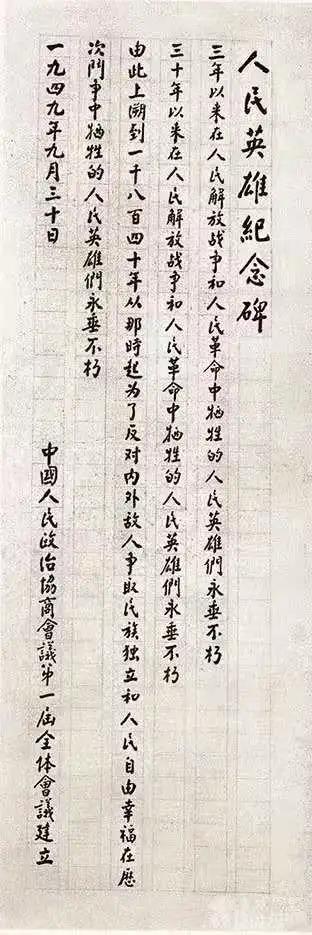 人民英雄紀念碑
三年以来在人民解放战争和人民革命中牺牲的人民英雄們永垂不朽
三十年以来在人民解放战争和人民革命中牺牲的人民英雄們永垂不朽
由此上溯到一千八百四十年从那時起为了反对内外敌人争取民族独立和人民自由幸福在历
次鬥争中牺牲的人民英雄們永垂不朽
一九四九年九月三十日
中國人民政治協商會議第一届全体會議建立